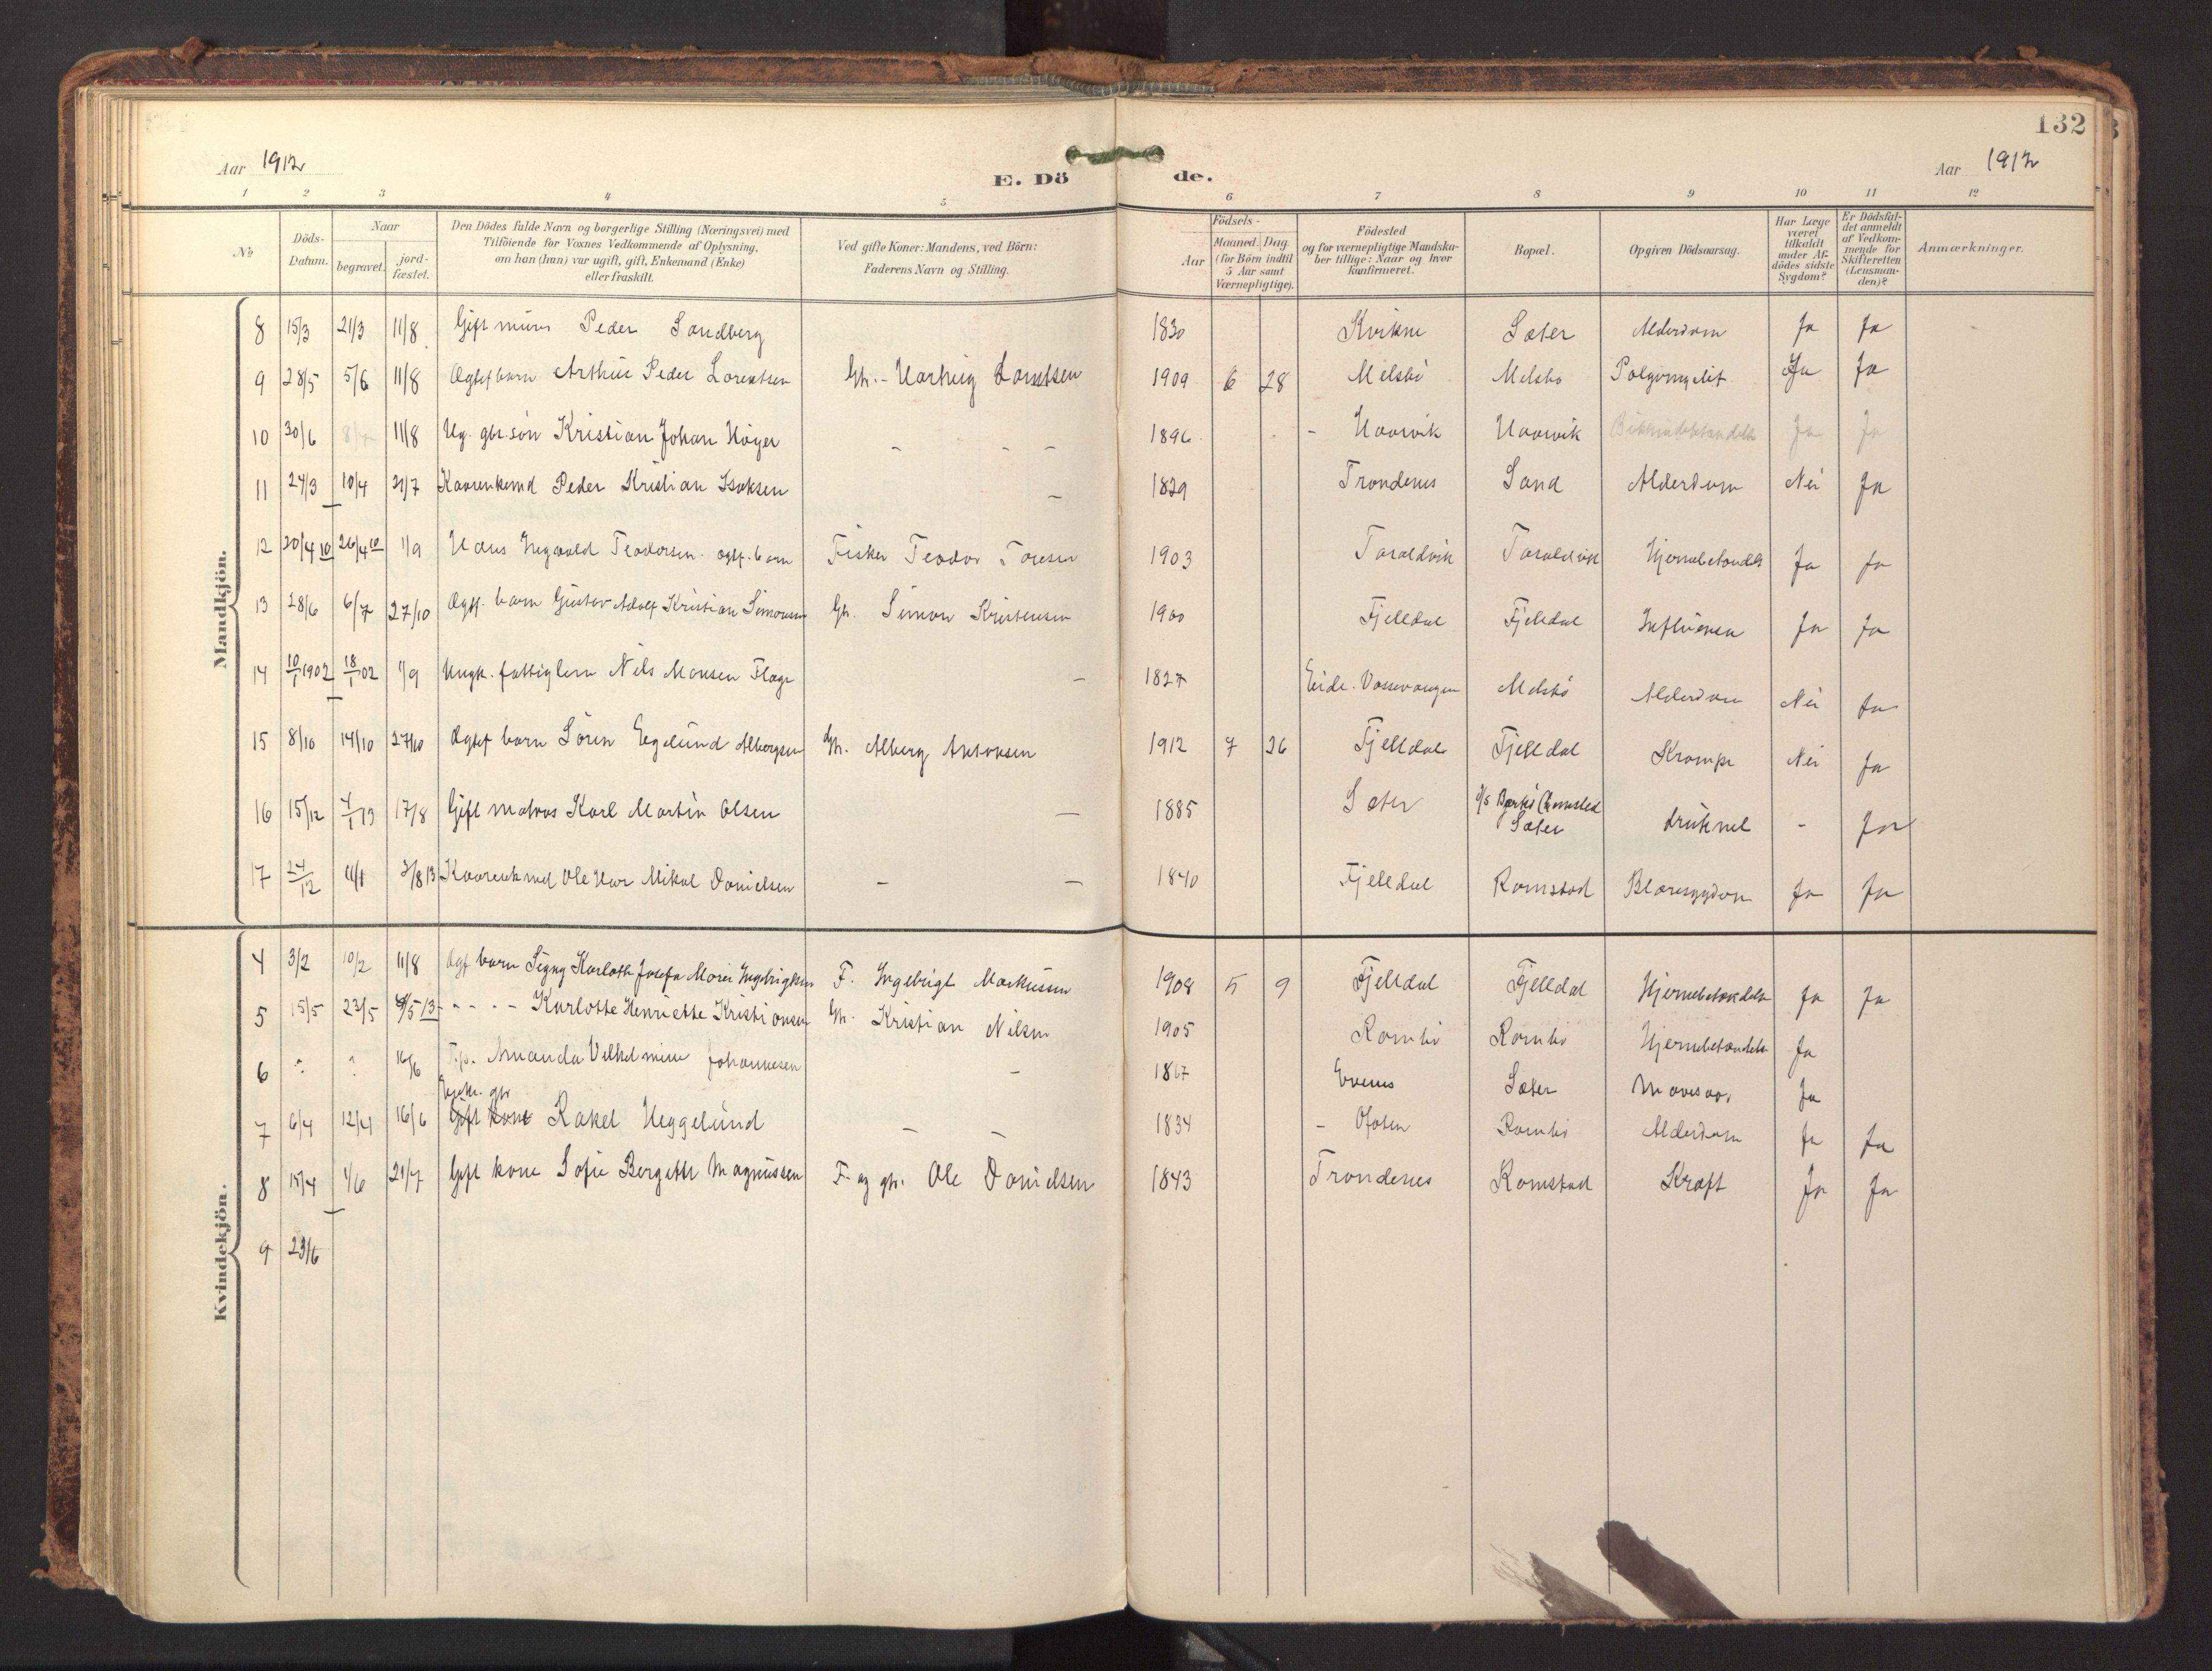 132
Aar 1912
E. Dö de.
Aar 1912
1 2 3 4 5 6 7 8 9 10 11 12
No
Döds-Datum.
Naar
begravet.
jord-fæstet.
Den Dödes fulde Navn og borgerlige Stilling (Næringsvei) med
Tilföiende for Voxnes Vedkommende af Oplysning,
om han (hun) var ugift, gift, Enkemand (Enke)
eller fraskilt.
Ved gifte Koner: Mandens, ved Börn:
Faderens Navn og Stilling.
Födsels-
Aar
Maaned. Dag.
(for Börn indtil
5 Aar samt
Værnepligtige).
Födested
og for værnepligtige Mandska-
ber tillige: Naar og hvor
konfirmeret.
Bopæl.
Opgiven Dödsaarsag.
Har Læge
været
tilkaldt
under Af-
dödes sidste
Sygdom?
Er Dödsfal-
det anmeldt
af Vedkom-
mende for
Skifteretten
(Lensman-
den)?
Anmærkninger.
Mandkjön.
8 15/3 21/3 11/8 Gift murer Peder Sandberg 1830 Kvikne Sæter Alderdom Ja Ja
9 28/5 5/6 11/8 Ægtef barn Arthur Peder Lorentsen Gbr. - Hartvig Lorentsen 1909 6 28 Melsbö Melsbo Ja Ja
10 30/6 11/8 Ug. gbr. sön Kristian Johan Höyer - - - 1896 - Haarvik Haarvik Ja Ja
11 24/3 10/4 21/7 Kaarenkemd Peder Kristian Isaksen - 1829 Trondenes Sand Alderdom Nei Ja
12 20/4 10 26/4 10 1/9 Hans Ingvald Teodorsen. ægtf. barn Fisker Teodor Toresen 1903 Taraldvik Taraldvik Hjernebetændelse Ja Ja
13 28/6 6/7 27/10 Ægtf. barn Gustav Adolf Kristian Simonsen Gbr. Simon Kristensen 1900 Fjelldal Fjelldal Influensa Ja Ja
14 10/1 1902 18/1 02 1/9 Ungk. fattiglem Nils Monsen Flage - 1827 Eide. Vossevangen Melsbö Alderdom Nei Ja
15 8/10 14/10 27/10 Ægtef barn Sören Egelund Albergsen Gbr. Alberg Antonsen 1912 7 26 Fjelldal Fjelldal Krampe Nei Ja
16 15/12 4/1 13 17/8 Gift matros Karl Martin Olsen - 1885 Sæter Sæter druknet - Ja
17 24/12 11/1 3/8 13 Kaarenkmd Ole Har Mikal Danielsen - - 1840 Fjelldal Ramstad Blæresygdom Ja Ja
Kvindekjön.
4 3/2 10/2 11/8 Ægf barn Signy Karlotte Josefa Marie Ingebrigtsen F. Ingebrigt Markussen 1908 5 9 Fjelldal Fjelldal Hjernebetændelse Ja Ja
5 15/5 23/5 /5 13 - - - - Karlotte Henriette Kristiansen Gbr. Kristian Nilsen 1905 Rambö Rambö Hjernebetændelse Ja
6 ? ? 16/6 Amanda Vilhelmine Johannesen - 1867 Evenes Sæter Mavesaar Ja
7 6/4 12/4 16/6 Gift kone Rakel Heggelund - - 1834 - Ofoten Rambö Alderdom Ja Ja
8 15/4 1/6 21/7 Gift kone Sofie Bergette Magnussen F. og gbr. Ole Danielsen 1843 Trondenes Ramstad Kræft Ja Ja
9 23/6